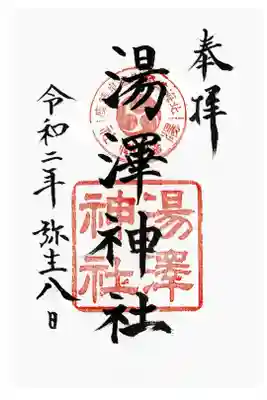 奉拝
湯澤神社
湯澤
神社
令和二年 弥生八日